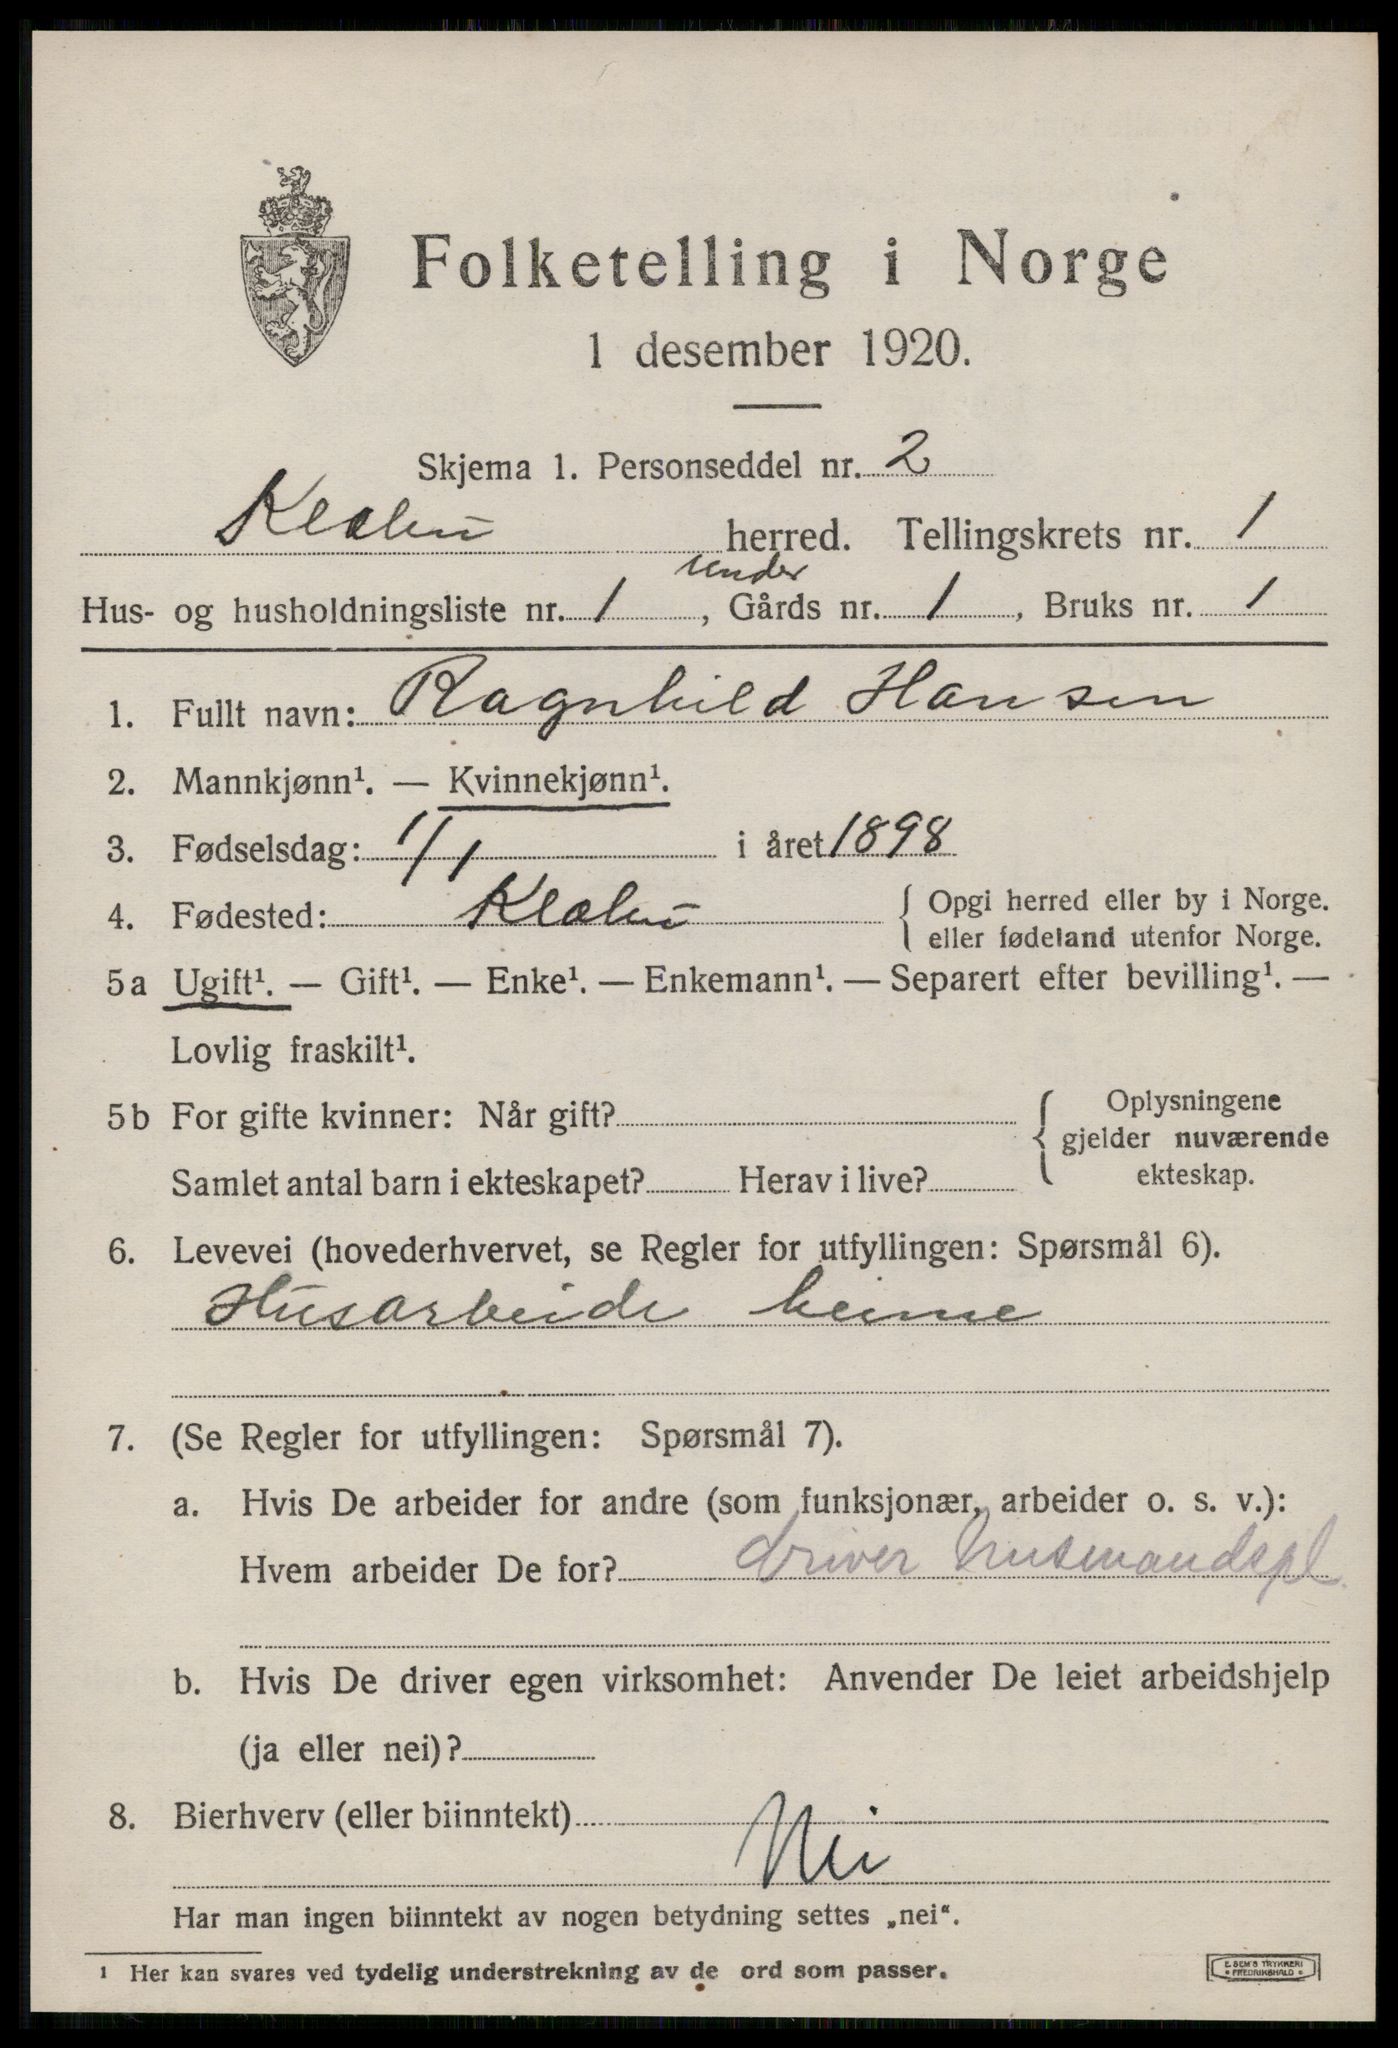 Folketelling i Norge
1 desember 1920.
Skjema 1. Personseddel nr. 2
Klæbu herred. Tellingskrets nr. 1
under
Hus- og husholdningsliste nr. 1, Gårds nr. 1, Bruks nr. 1
1. Fullt navn: Ragnhild Hansen
2. Mannkjønn¹. — Kvinnekjønn¹.
3. Fødselsdag: 1/1 i året 1898
4. Fødested: Klæbu { Opgi herred eller by i Norge.
eller fødeland utenfor Norge.
5a Ugift¹. — Gift¹. — Enke¹. — Enkemann¹. — Separert efter bevilling¹. —
Lovlig fraskilt¹.
5b For gifte kvinner: Når gift? { Oplysningene
gjelder nuværende
Samlet antal barn i ekteskapet? Herav i live? ekteskap.
6. Levevei (hovederhvervet, se Regler for utfyllingen: Spørsmål 6).
Husarbeide heime
7. (Se Regler for utfyllingen: Spørsmål 7).
a. Hvis De arbeider for andre (som funksjonær, arbeider o. s. v.):
Hvem arbeider De for? driver husmandspl.
b. Hvis De driver egen virksomhet: Anvender De leiet arbeidshjelp
(ja eller nei)?
8. Bierhverv (eller biinntekt)
Nei
Har man ingen biinntekt av nogen betydning settes „nei“.
¹ Her kan svares ved tydelig understrekning av de ord som passer.
E. SEM'S TRYKKERI
FREDRIKSHALD